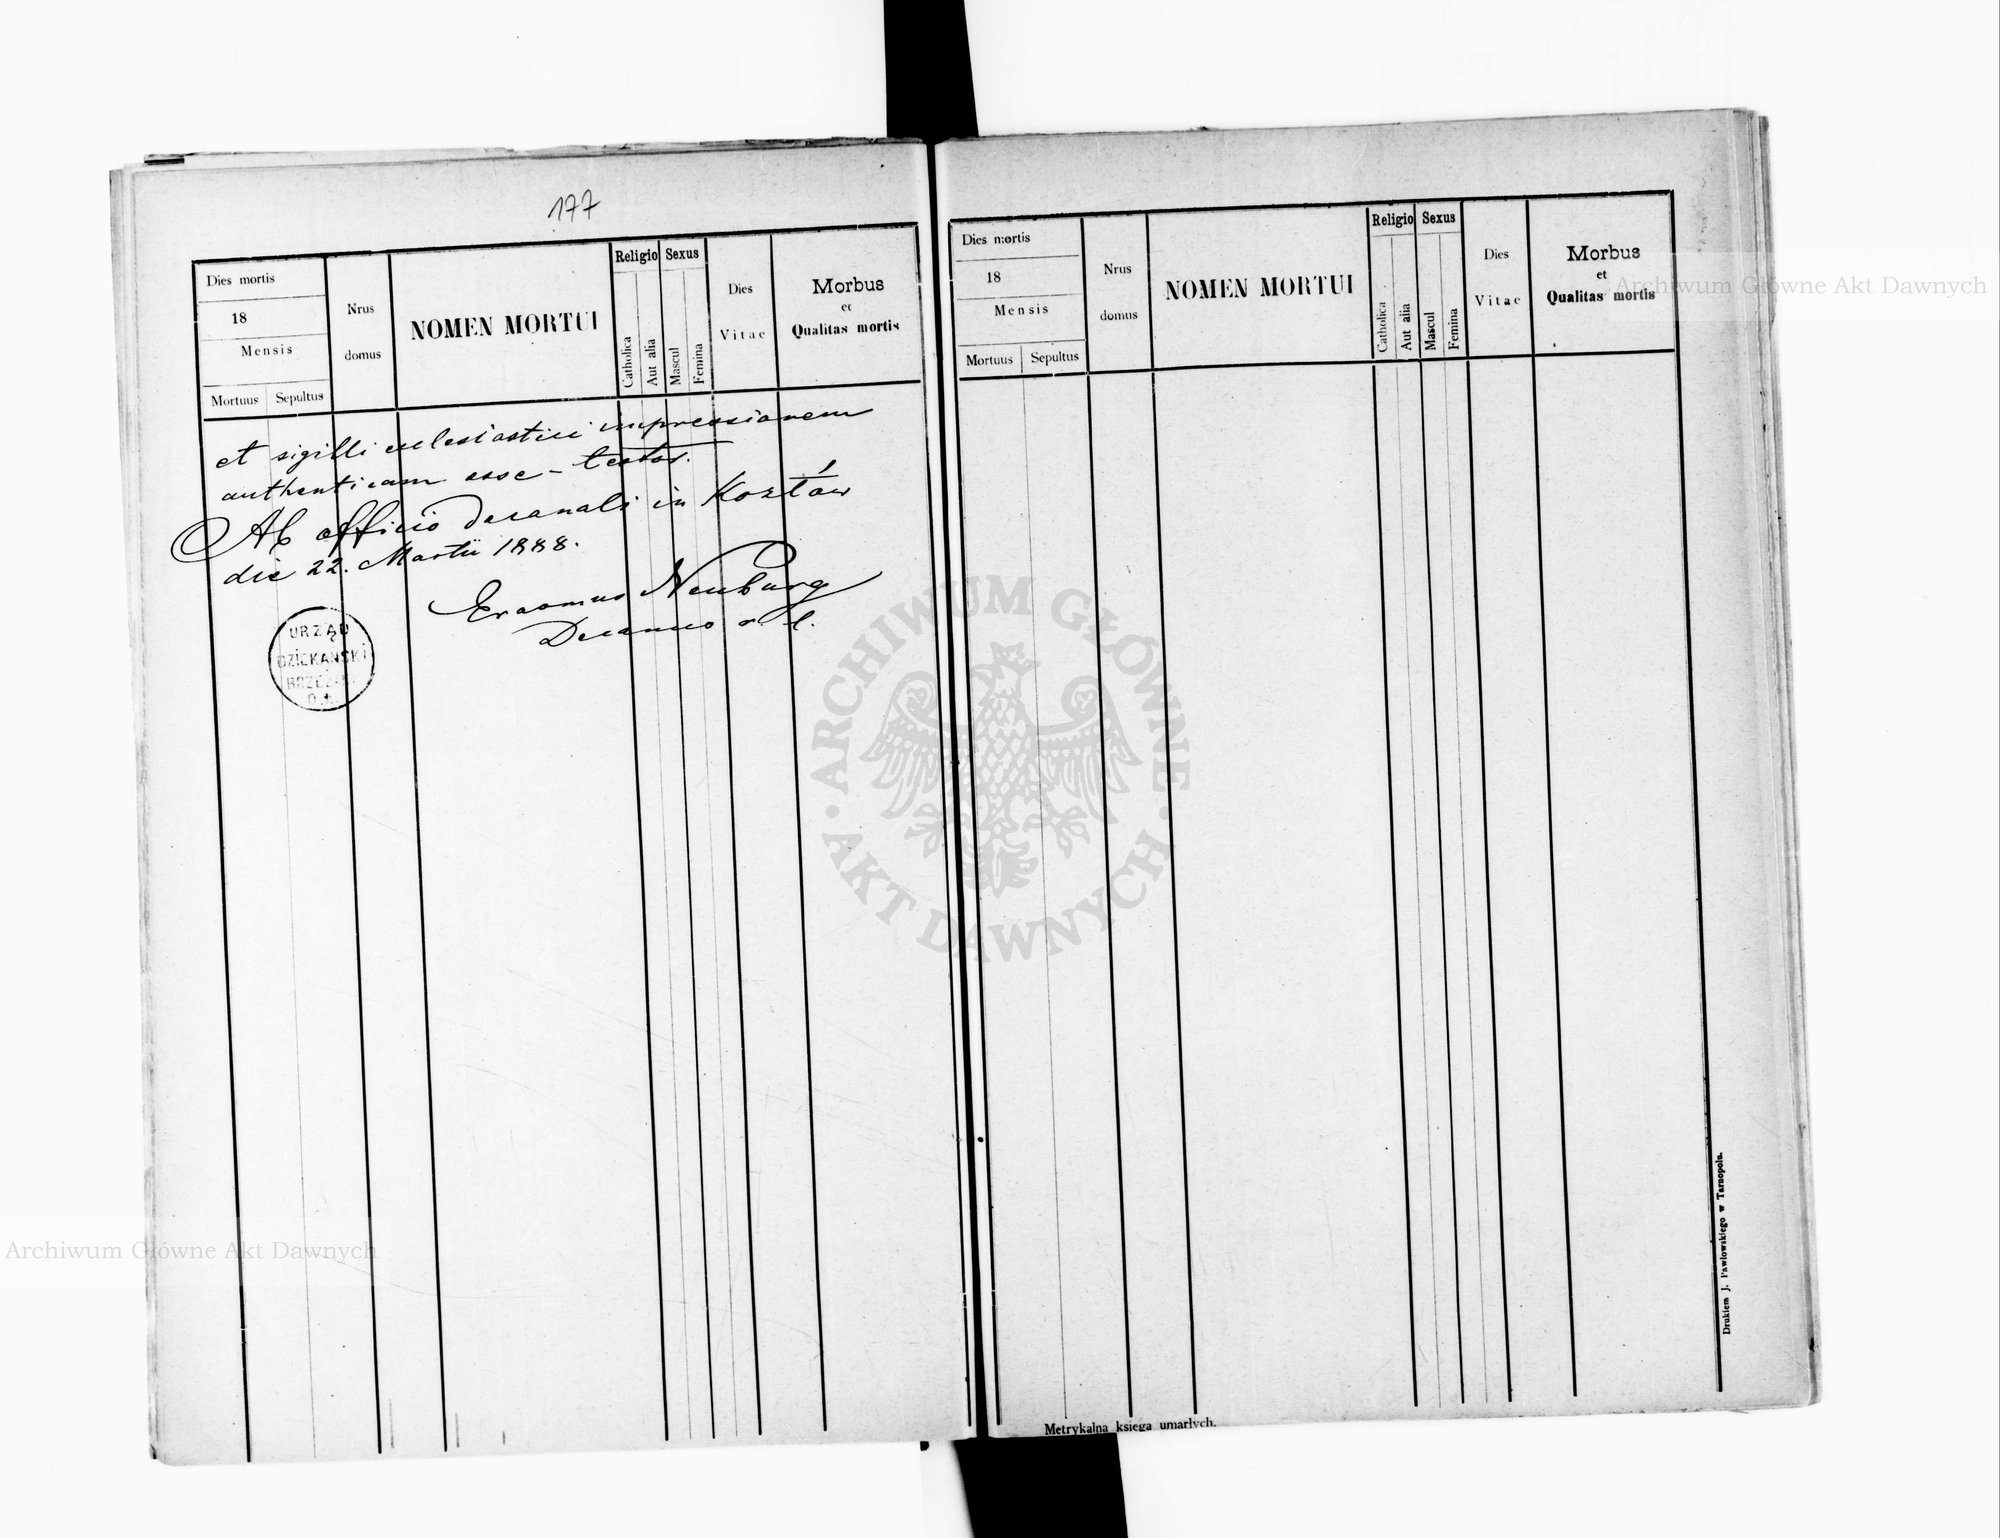 177
Dies mortis
18
Mensis
Mortuus Sepultus
Nrus
domus
NOMEN MORTUI
Religio
Catholica
Aut alia
Sexus
Mascul
Femina
Dies
Vitae
Morbus
et
Qualitas mortis
et sigilli eclesiastici impressionem
authenticam esse – testor.
Ab officio decanali in Kozłów
die 22. Martii 1888.
Erasmus Neuburg
Decanus r. l.
URZĄD
DZIEKAŃSKI
Dies mortis
18
Mensis
Mortuus Sepultus
Nrus
domus
NOMEN MORTUI
Religio
Catholica
Aut alia
Sexus
Mascul
Femina
Dies
Vitae
Morbus
et
Qualitas mortis
Drukiem J. Pawłowskiego w Tarnopolu.
Metrykalna księga umarłych.
Archiwum Główne Akt Dawnych
ARCHIWUM GŁÓWNE
AKT DAWNYCH
Archiwum Główne Akt Dawnych